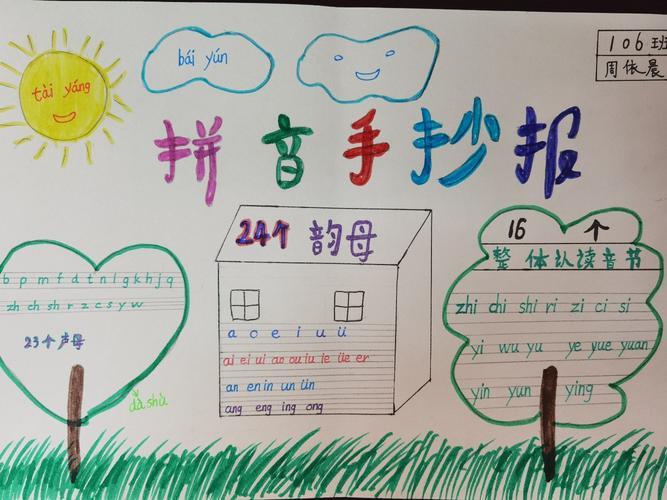 106班
周依晨
bái yún
tài yáng
拼音手抄报
24个 韵母
16 个
整体认读音节
b p m f d t n l g k h j q
zh ch sh r z c s y w
23个声母
dà shù
a o e i u ü
ai ei ui ao ou iu ie üe er
an en in un ün
ang eng ing ong
zhi chi shi ri zi ci si
yi wu yu ye yue yuan
yin yun ying